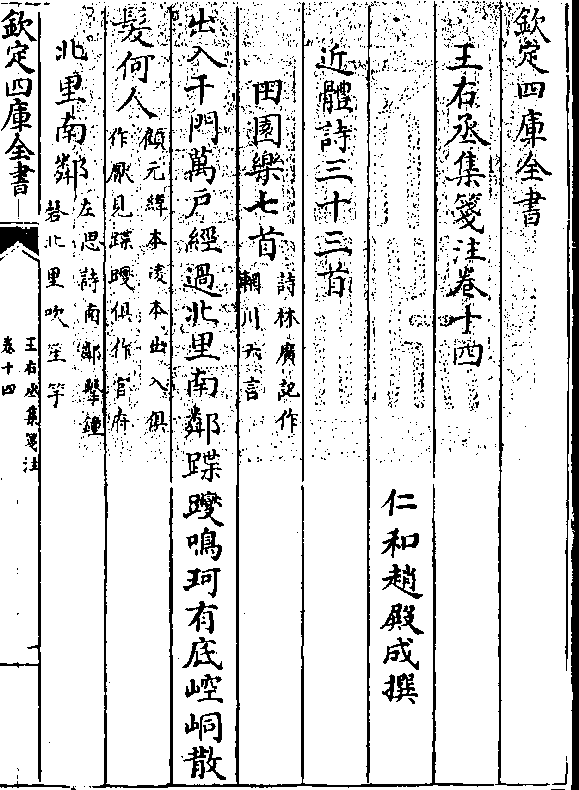 欽定四庫全書
王右丞集箋注卷十四
仁和趙殿成撰
近體詩三十三首
田園樂七首
詩林廣記作
輞川六言
出入千門萬戶經過北里南鄰蹀躞鳴珂有底崆峒散
髮何人
顧元緯本凌本出入俱
作厭見蹀躞俱作官府
北里南鄰
左思詩南鄰擊鐘
磬北里吹笙竽
欽定四庫全書
王右丞集箋注
卷十四